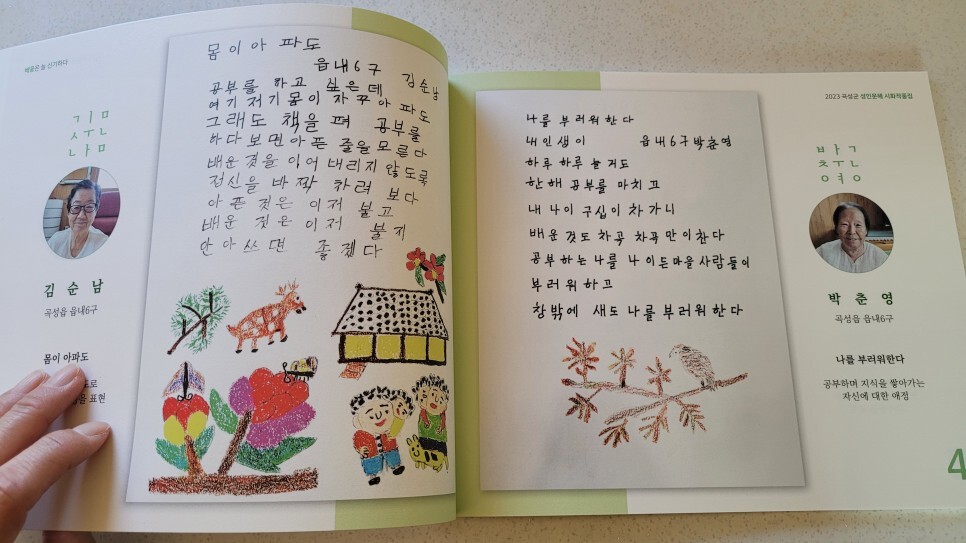 배움은 늘 신기하다
김순남
김순남
곡성읍 읍내6구
몸이 아파도
로
을 표현
몸이아 파도
읍내6구 김순남
공부를 하고 싶은데
여기저기몸이자꾸아 파도
그래도 책을 펴 공부를
하다보면아픈 줄을모른다
배운것을 이어 내리지 않도록
정신을 바짝 차려 보다
아픈 것은 이저 불고
배운 것은 이저 불지
안아쓰면 좋겠다
나를 부러워한다
내인생이 읍내6구박춘영
하루하루 늘거도
한해 공부를 마치고
내 나이 구십이 차가니
배운것도 차곡 차곡만이찬다
공부하는 나를 나이든마을사람들이
부러워하고
창밖에 새도 나를부러워한다
2023 곡성군 성인문해 시화작품집
박춘영
박춘영
곡성읍 읍내6구
나를 부러워한다
공부하며 지식을 쌓아가는
자신에 대한 애정
4